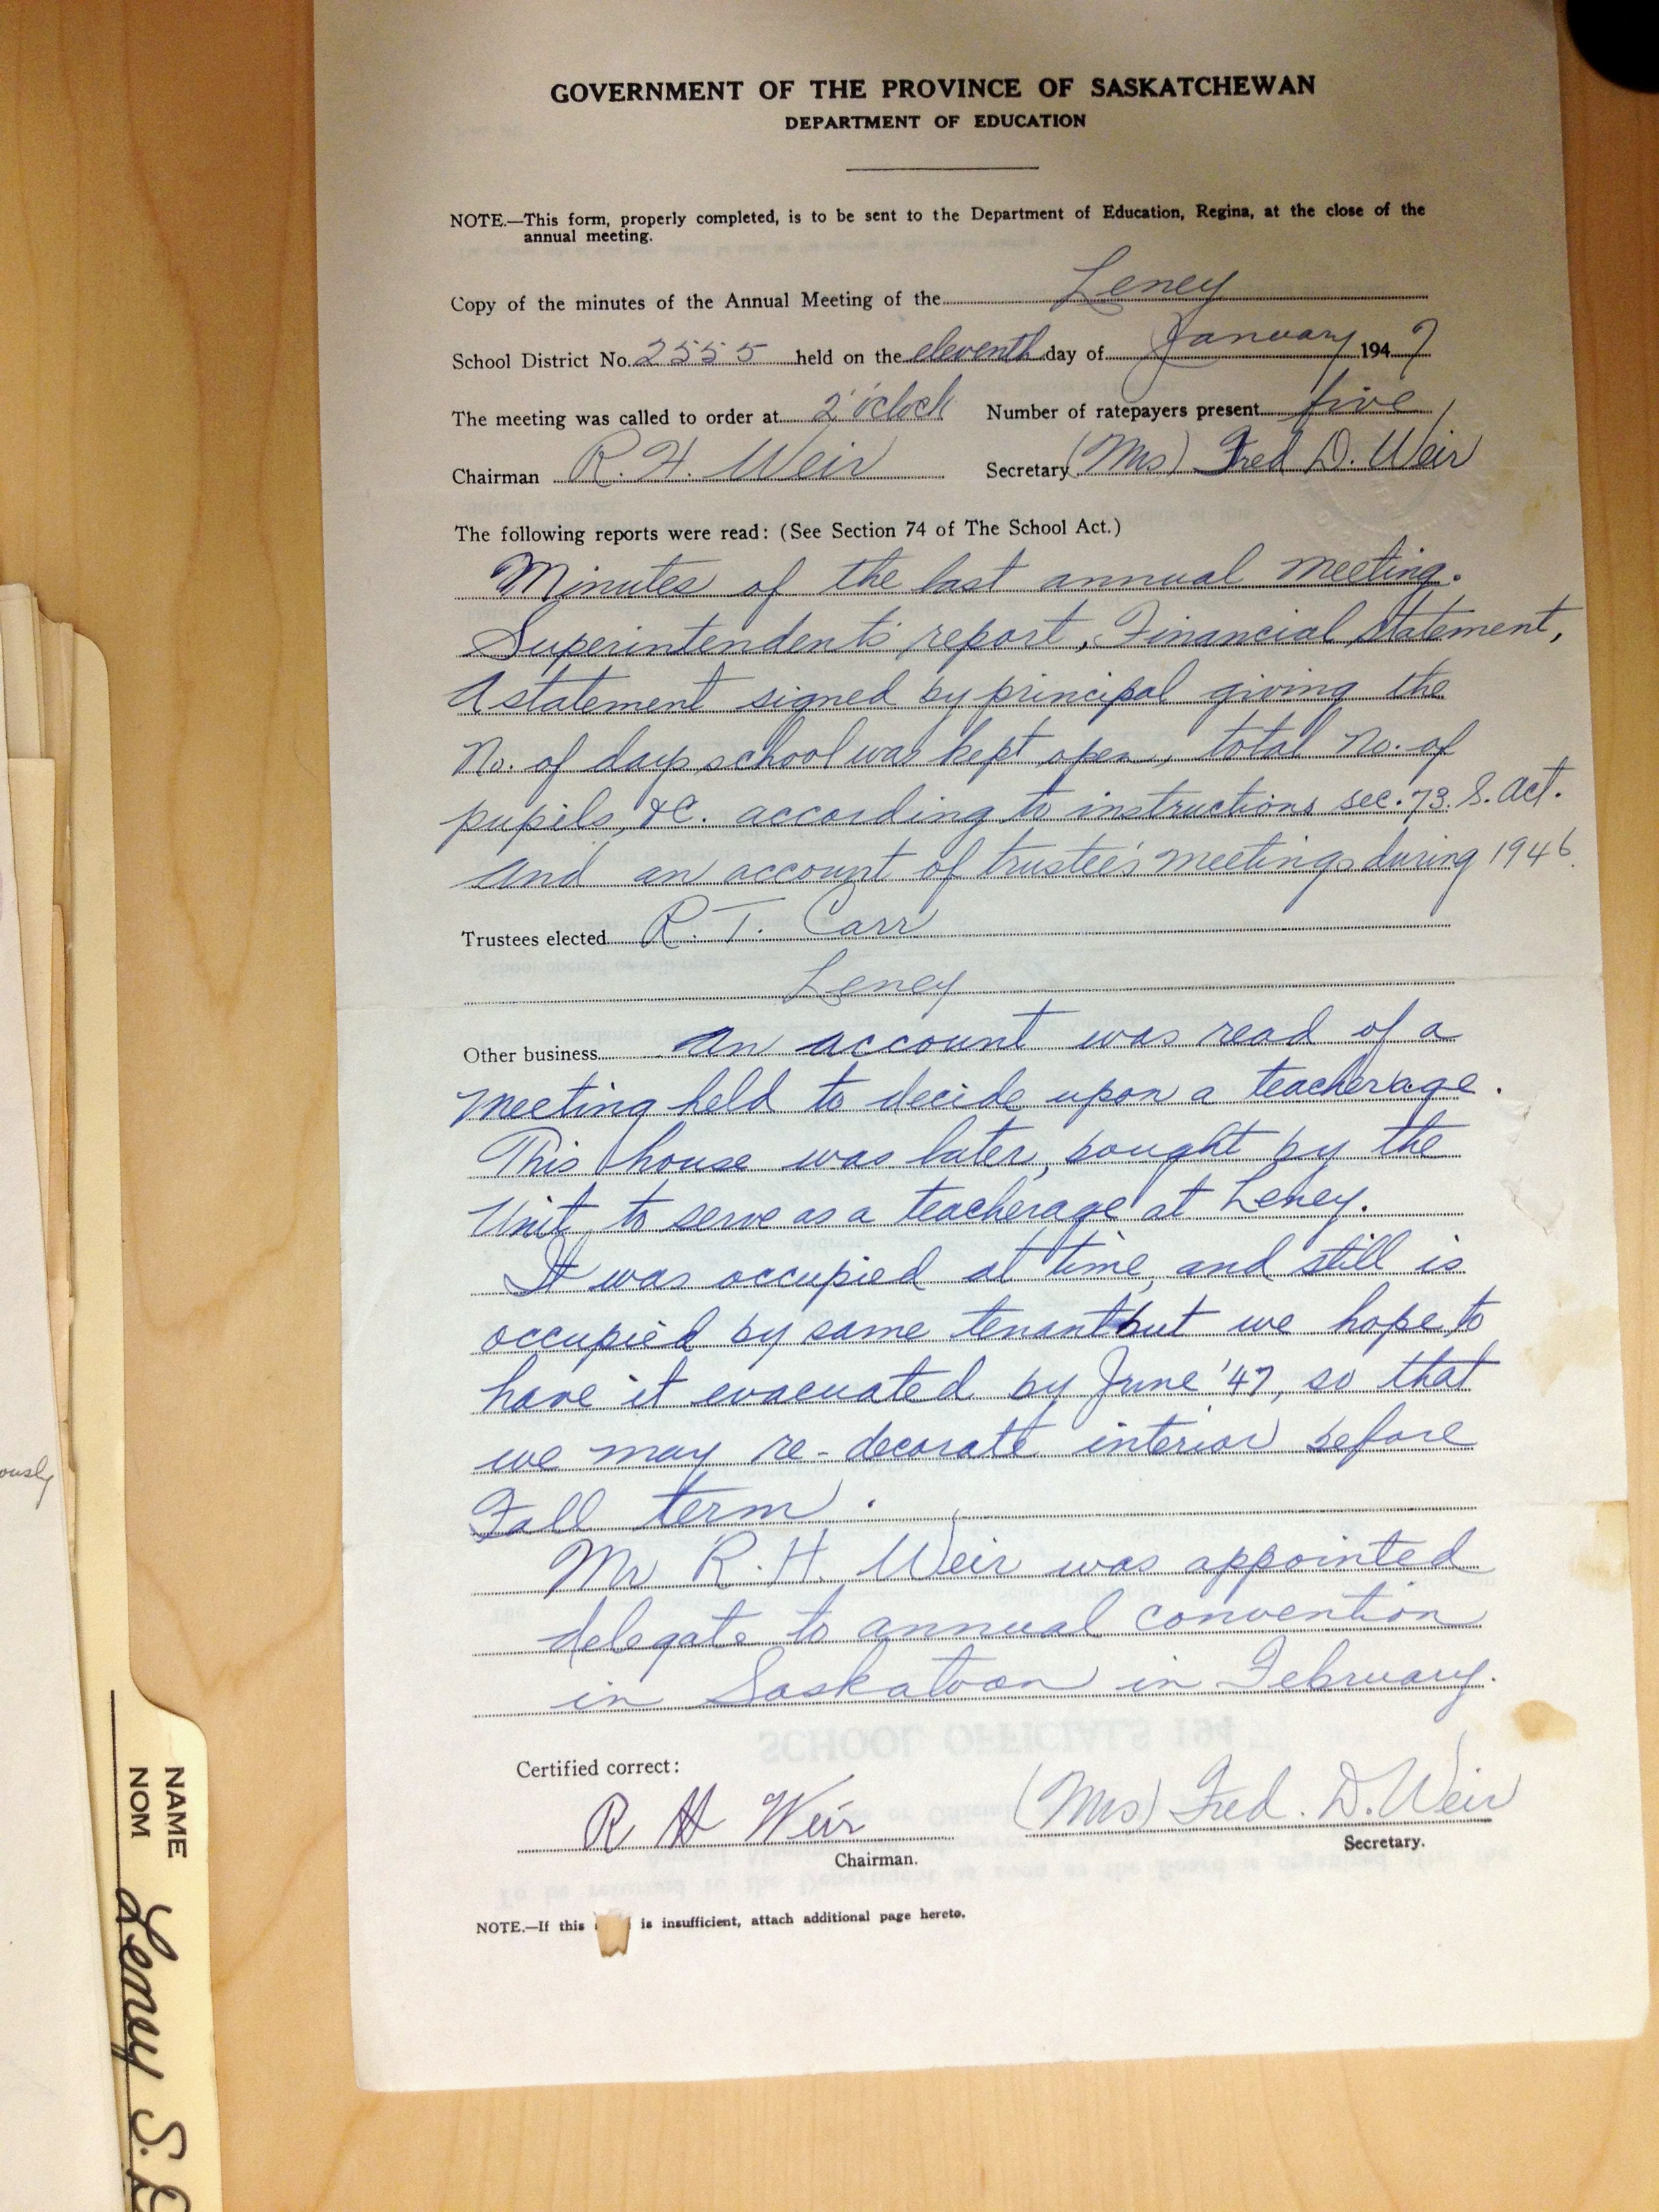 GOVERNMENT OF THE PROVINCE OF SASKATCHEWAN
DEPARTMENT OF EDUCATION
NOTE.—This form, properly completed, is to be sent to the Department of Education, Regina, at the close of the
annual meeting.
Copy of the minutes of the Annual Meeting of the Leney
School District No. 2555 held on the eleventh day of January 1947
The meeting was called to order at 2 o'clock Number of ratepayers present five
Chairman R. H. Weir Secretary (Mrs) Fred D. Weir
The following reports were read: (See Section 74 of The School Act.)
Minutes of the last annual meeting.
Superintendent's report, Financial Statement,
A statement signed by principal giving the
No. of days school was kept open, total No. of
pupils, &C. according to instructions sec. 73. S. Act.
and an account of trustee's meetings during 1946.
Trustees elected R. T. Carr
Leney
Other business An account was read of a
meeting held to decide upon a teacherage.
This house was later, bought by the
Unit, to serve as a teacherage at Leney.
It was occupied at time, and still is
occupied by same tenant but we hope to
have it evacuated by June '47, so that
we may re-decorate interior before
Fall term.
Mr R. H. Weir was appointed
delegate to annual convention
in Saskatoon in February.
SCHOOL OFFICIALS 194
Certified correct:
R H Weir (Mrs) Fred. D. Weir
Chairman. Secretary.
NOTE.—If this is insufficient, attach additional page hereto.
ously
NAME
NOM
Leney S.D